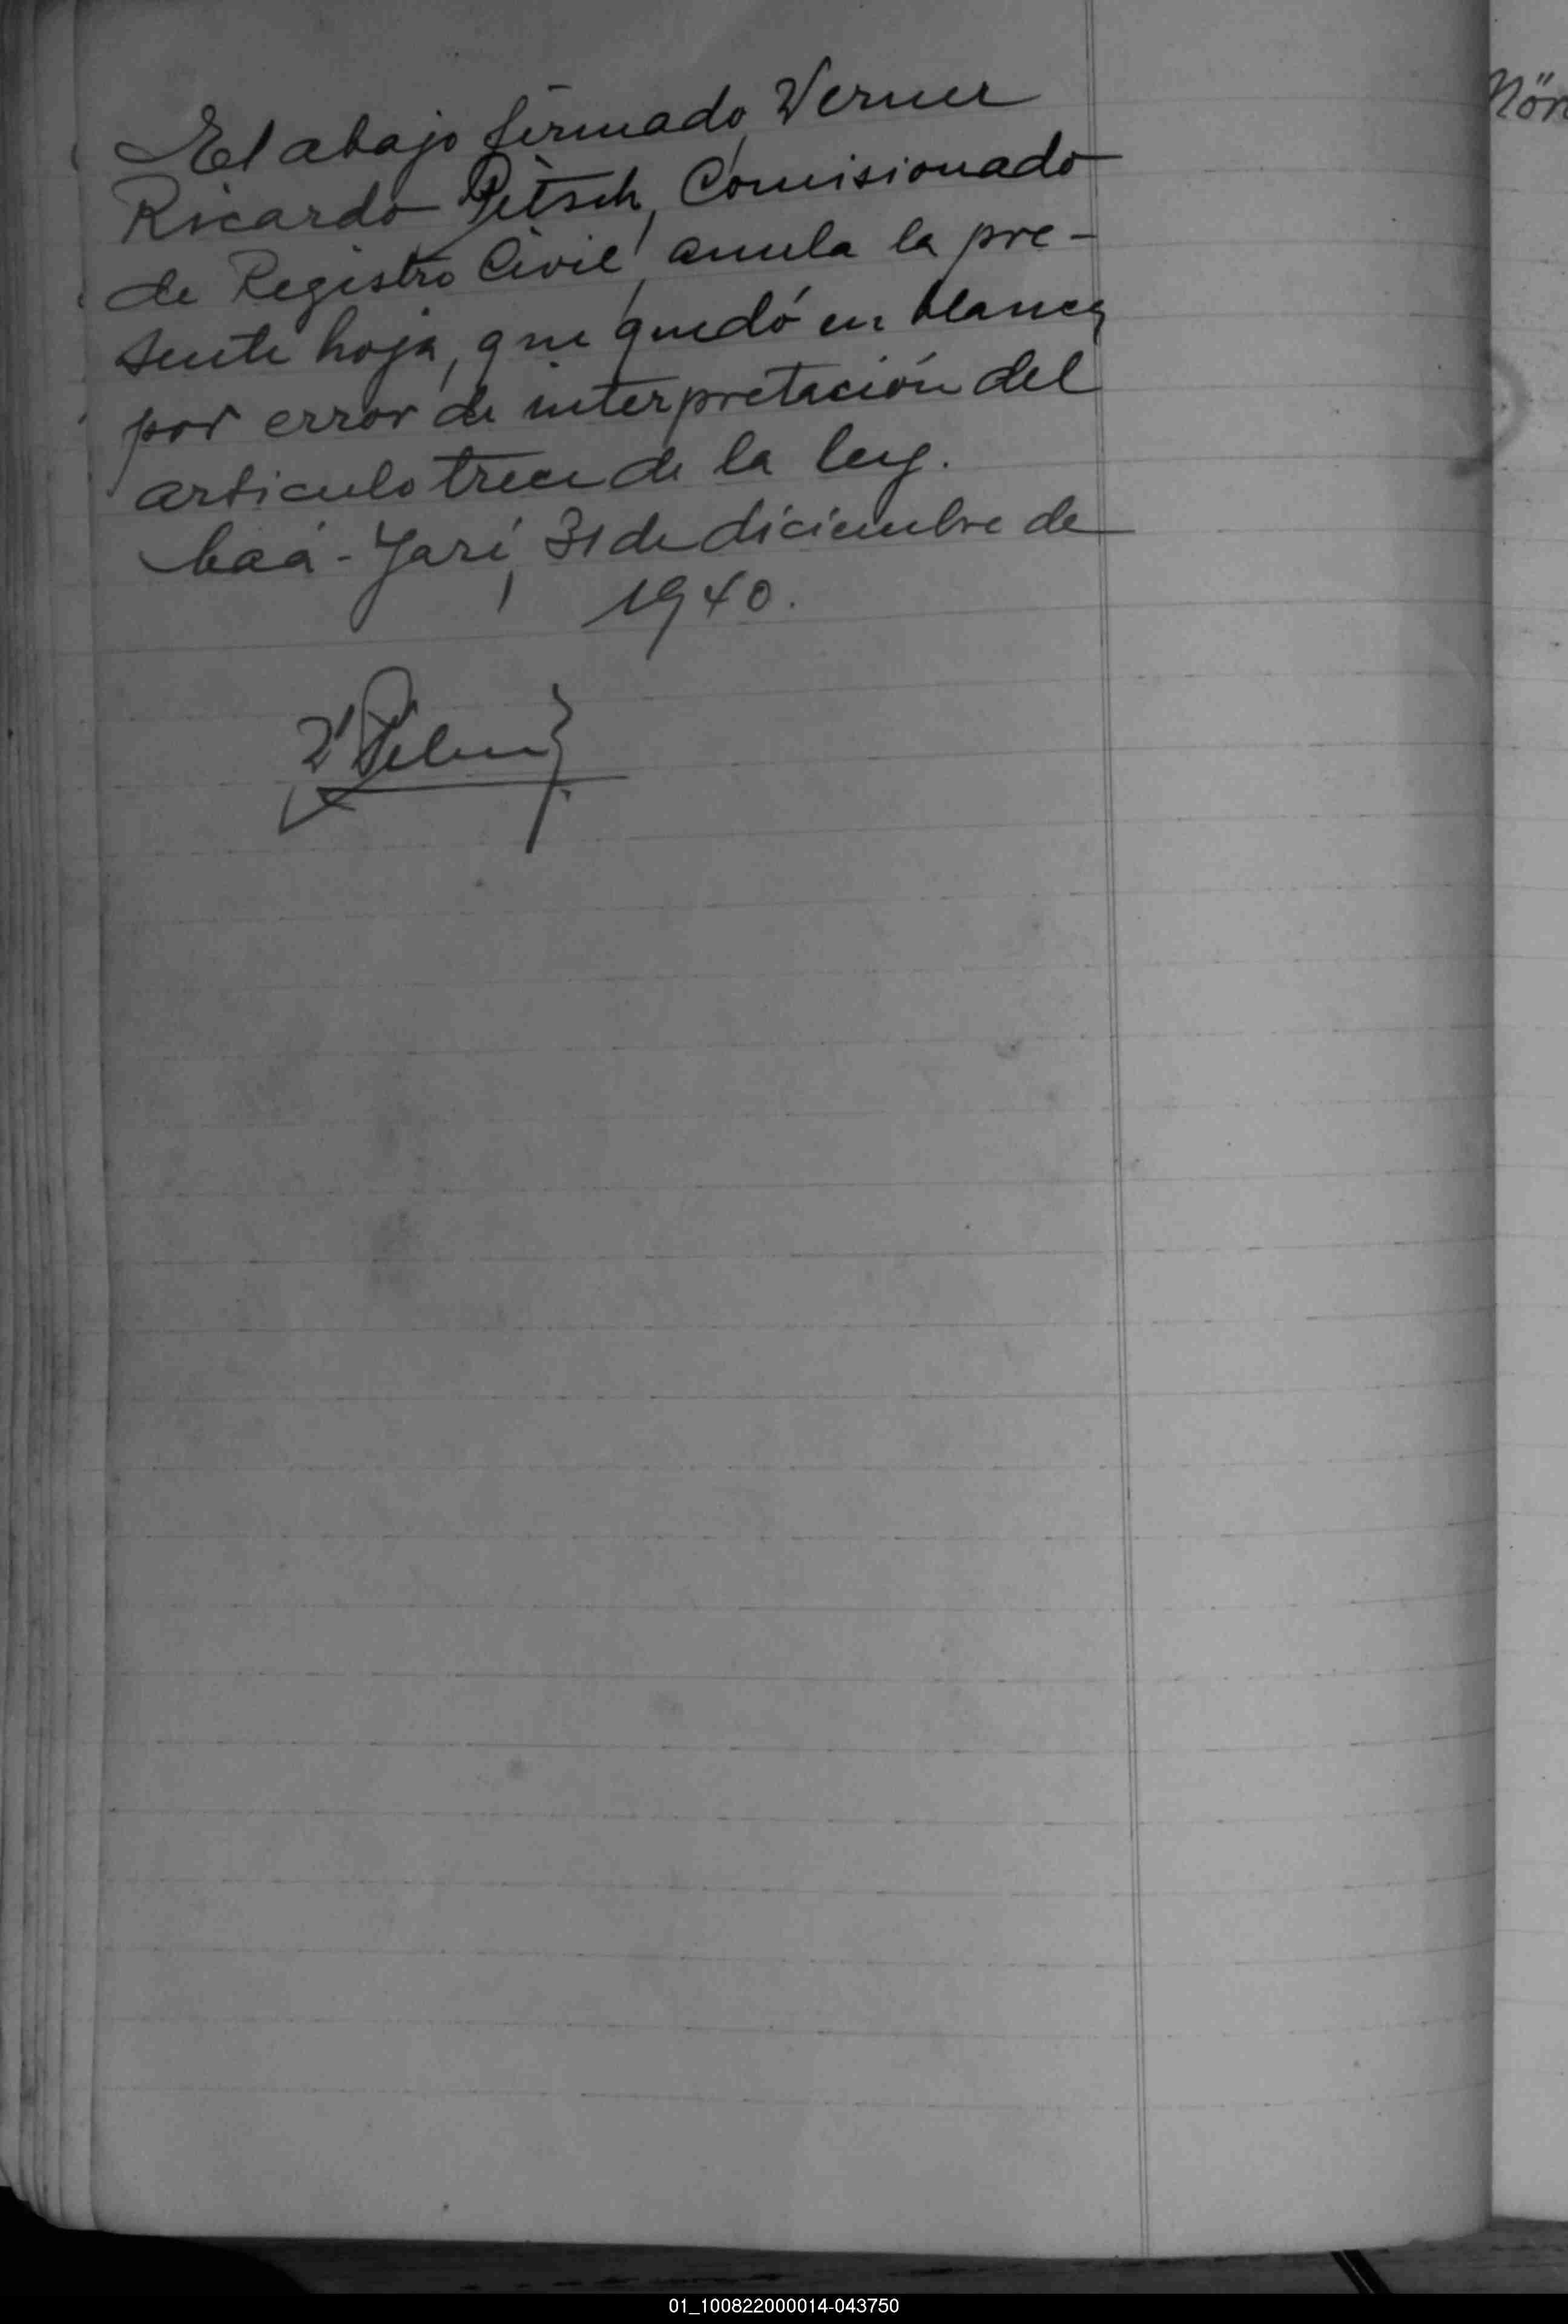 El abajo firmado, Werner
Ricardo Pietsch, Comisionado
de Registro Civil, anula la pre-
sente hoja, que quedó en blanco,
por error de interpretación del
articulo trece de la ley.
Caá-Yarí, 31 de diciembre de
1940.
01_100822000014-043750